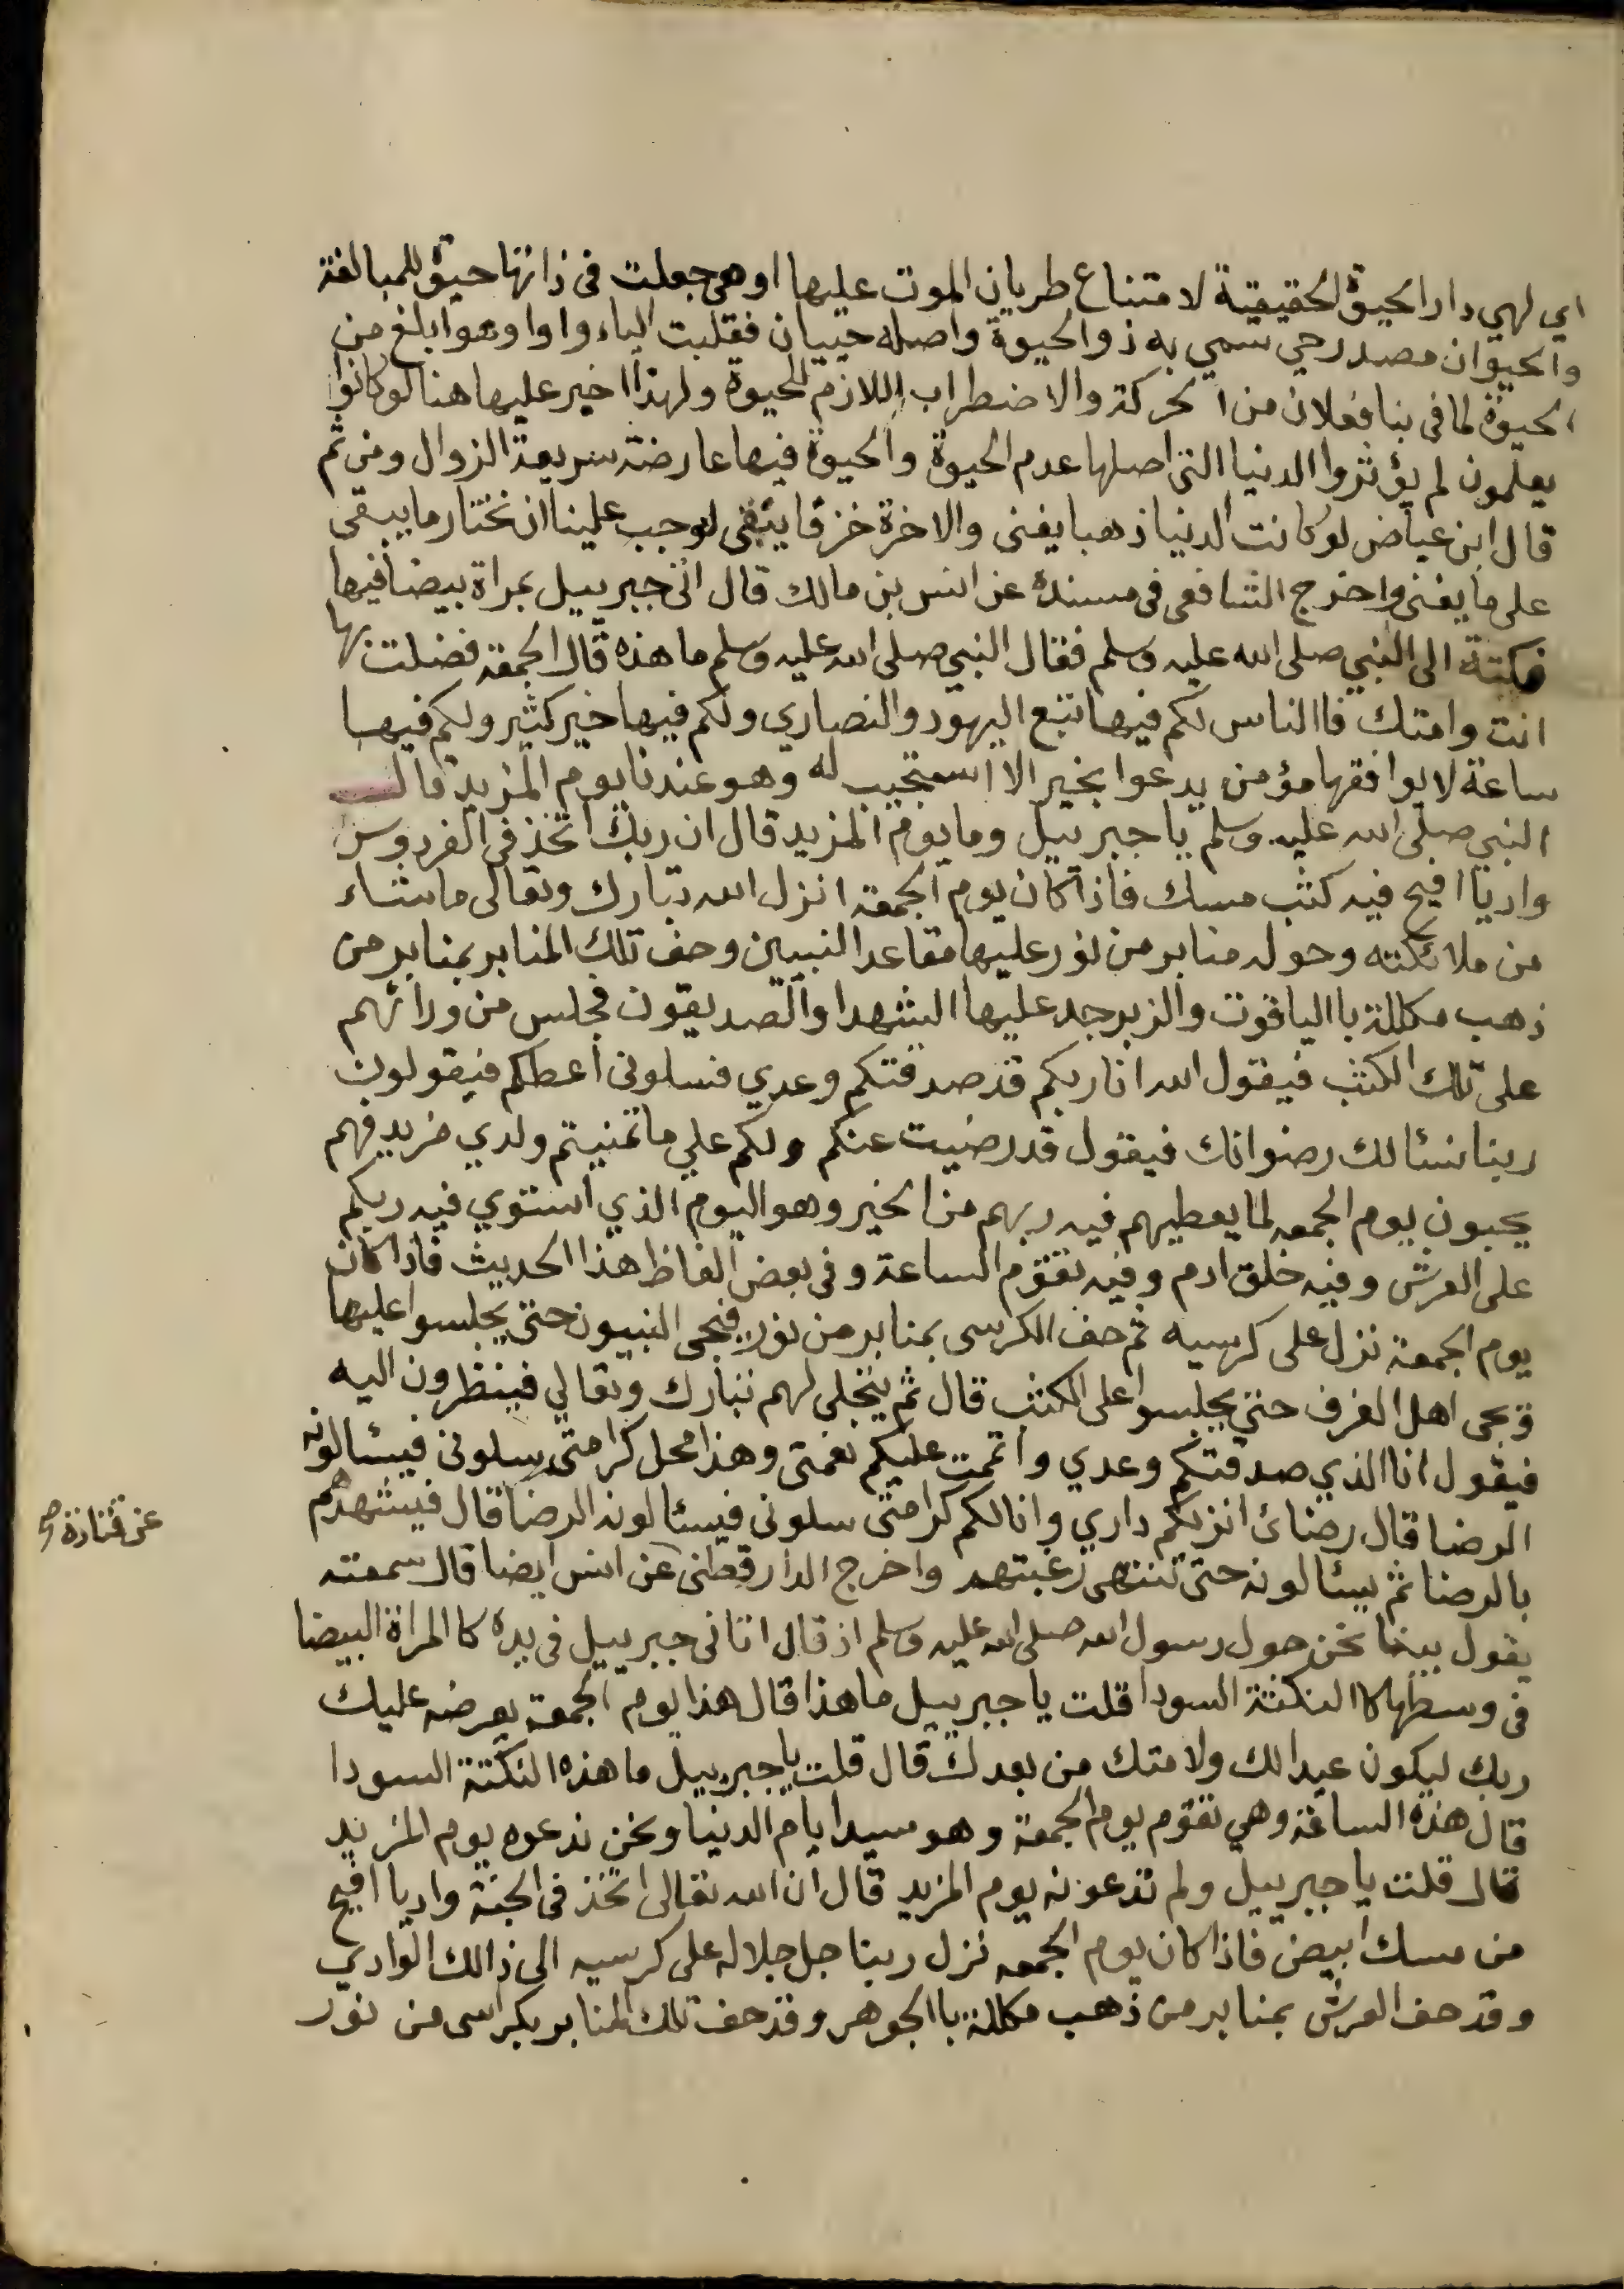 اي لهي دار الحيوة الحقيقية لامتناع طريان الموت عليها او هي جعلت في ذاتها حيوة للمبالغة
والحيوان مصدر حي سمي به ذو الحيوة واصله حييان فقلبت الياء واوا وهو ابلغ من
الحيوة لما في بنا فعلان من الحركة والاضطراب اللازم للحيوة ولهذا اخير عليها هنا لو كانوا
يعلمون لم يؤثروا الدنيا التي اصلها عدم الحيوة والحيوة فيها عارضة سريعة الزوال ومن ثم
قال ابن عياض لو كانت الدنيا ذهبا يفنى والاخرة خزفا يبقى لوجب علينا ان نختار ما يبقى
على ما يفنى واخرج الشافعي في مسنده عن انس بن مالك قال اتى جبرييل بمراة بيضا فيها
نكتة الى النبي صلى الله عليه وسلم فقال النبي صلى الله عليه وسلم ما هذه قال الجمعة فضلت بها
انت وامتك فاالناس لكم فيها تبع اليهود والنصاري ولكم فيها خير كثير ولكم فيها
ساعة لا يوافقها مؤمن يدعوا بخير الا استجيب له وهو عندنا يوم المزيد قال
النبي صلى الله عليه وسلم يا جبرييل وما يوم المزيد قال ان ربك اتخذ في الفردوس
واديا افيح فيه كثب مسك فاذا كان يوم الجمعة انزل الله تبارك وتعالى ما شاء
من ملائكته وحوله منابر من نور عليها مقاعد النبيين وحف تلك المنابر بمنابر من
ذهب مكللة باالياقوت والزبرجد عليها الشهدا والصديقون فجلس من ورائهم
على تلك الكثب فيقول الله انا ربكم قد صدقتكم وعدي فسلوني اعطكم فيقولون
ربنا نسئالك رضوانك فيقول قد رضيت عنكم ولكم علي ما تمنيتم ولدي مزيد فهم
يحبون يوم الجمعه لما يعطيهم فيه ربهم من الخير وهو اليوم الذي استوي فيه ربكم
على العرش وفيه خلق ادم وفيه تقوم الساعة وفي بعض الفاظ هذا الحديث فاذا كان
يوم الجمعة نزل على كرسيه ثم حف الكرسي بمنابر من نور فيجى النبيون حتى يجلسوا عليها
ويجى اهل الغرف حتى يجلسوا على الكثب قال ثم يتجلى لهم تبارك وتعالي فينظرون اليه
فيقول انا الذي صدقتكم وعدي واتممت عليكم نعمتي وهذا محل كرامتي سلوني فيسئالونه
الرضا قال رضائ انزلكم داري وانالكم كرامتي سلوني فيسئالونه الرضا قال فيشهدهم
بالرضا ثم يسئالونه حتى تنتهى رغبتهم واخرج الدارقطني عن انس ايضا قال سمعته
عن قتادة صح
يقول بينما نحن حول رسول الله صلى الله عليه وسلم اذ قال اتاني جبرييل في يده كا المراة البيضا
في وسطها كا النكتة السودا قلت يا جبرييل ما هذا قال هذا يوم الجمعة يعرضه عليك
ربك ليكون عيدا لك ولامتك من بعدك قال قلت يا جبرييل ما هذه النكتة السودا
قال هذه الساعة وهي تقوم يوم الجمعة وهو سيد ايام الدنيا ونحن ندعوه يوم المزيد
قال قلت يا جبرييل ولم تدعونه يوم المزيد قال ان الله تعالى اتخذ في الجنة واديا افيح
من مسك ابيض فاذا كان يوم الجمعه نزل ربنا جل جلاله على كرسيه الى ذالك الوادي
وقد حف العرش بمنابر من ذهب مكللة باالجوهر وقد حفت تلك المنابر بكراسى من نور